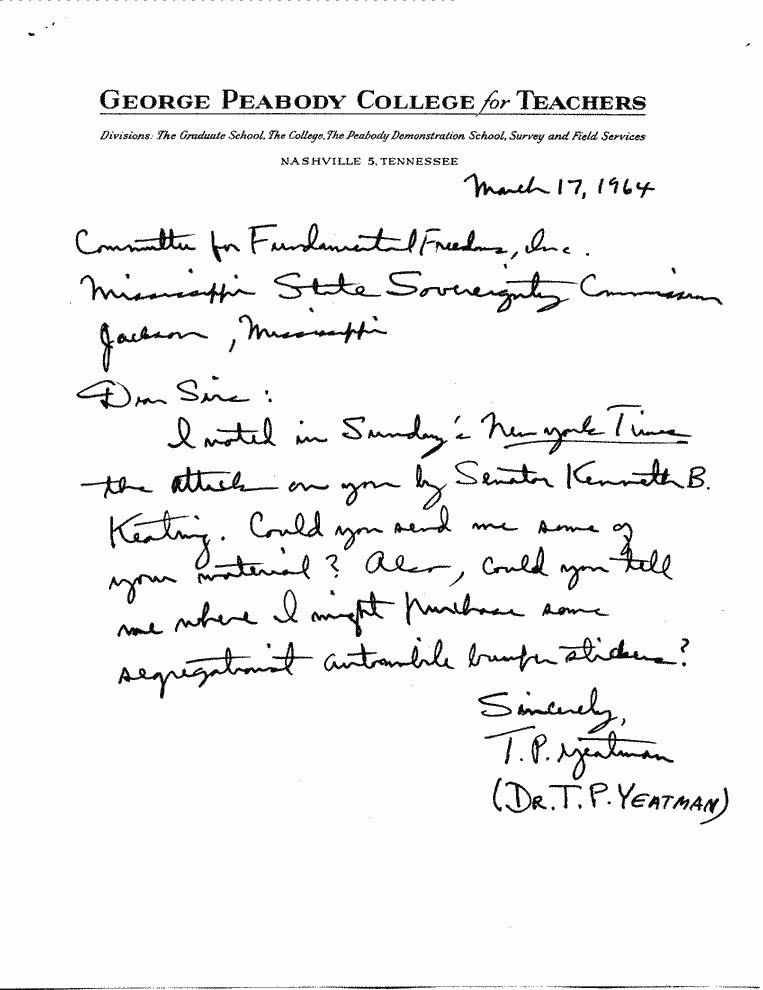 GEORGE PEABODY COLLEGE for TEACHERS
Divisions: The Graduate School, The College, The Peabody Demonstration School, Survey and Field Services
NASHVILLE 5, TENNESSEE
March 17, 1964
Committee for Fundamental Freedoms, Inc.
Mississippi State Sovereignty Commission
Jackson, Mississippi
Dear Sirs:
I noted in Sunday's New York Times
the attack on you by Senator Kenneth B.
Keating. Could you send me some of
your material? Also, could you tell
me where I might purchase some
segregationist automobile bumper stickers?
Sincerely,
T. P. Yeatman
(DR. T. P. YEATMAN)